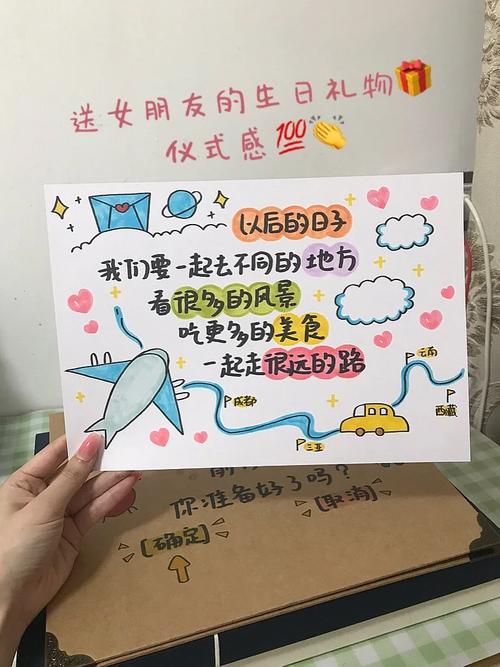 送女朋友的生日礼物🎁
仪式感💯👏
以后的日子
我们要一起去不同的地方
看很多的风景
吃更多的美食
一起走很远的路
云南
成都
西藏
三亚
你准备好了吗?
[取消]
[确定]